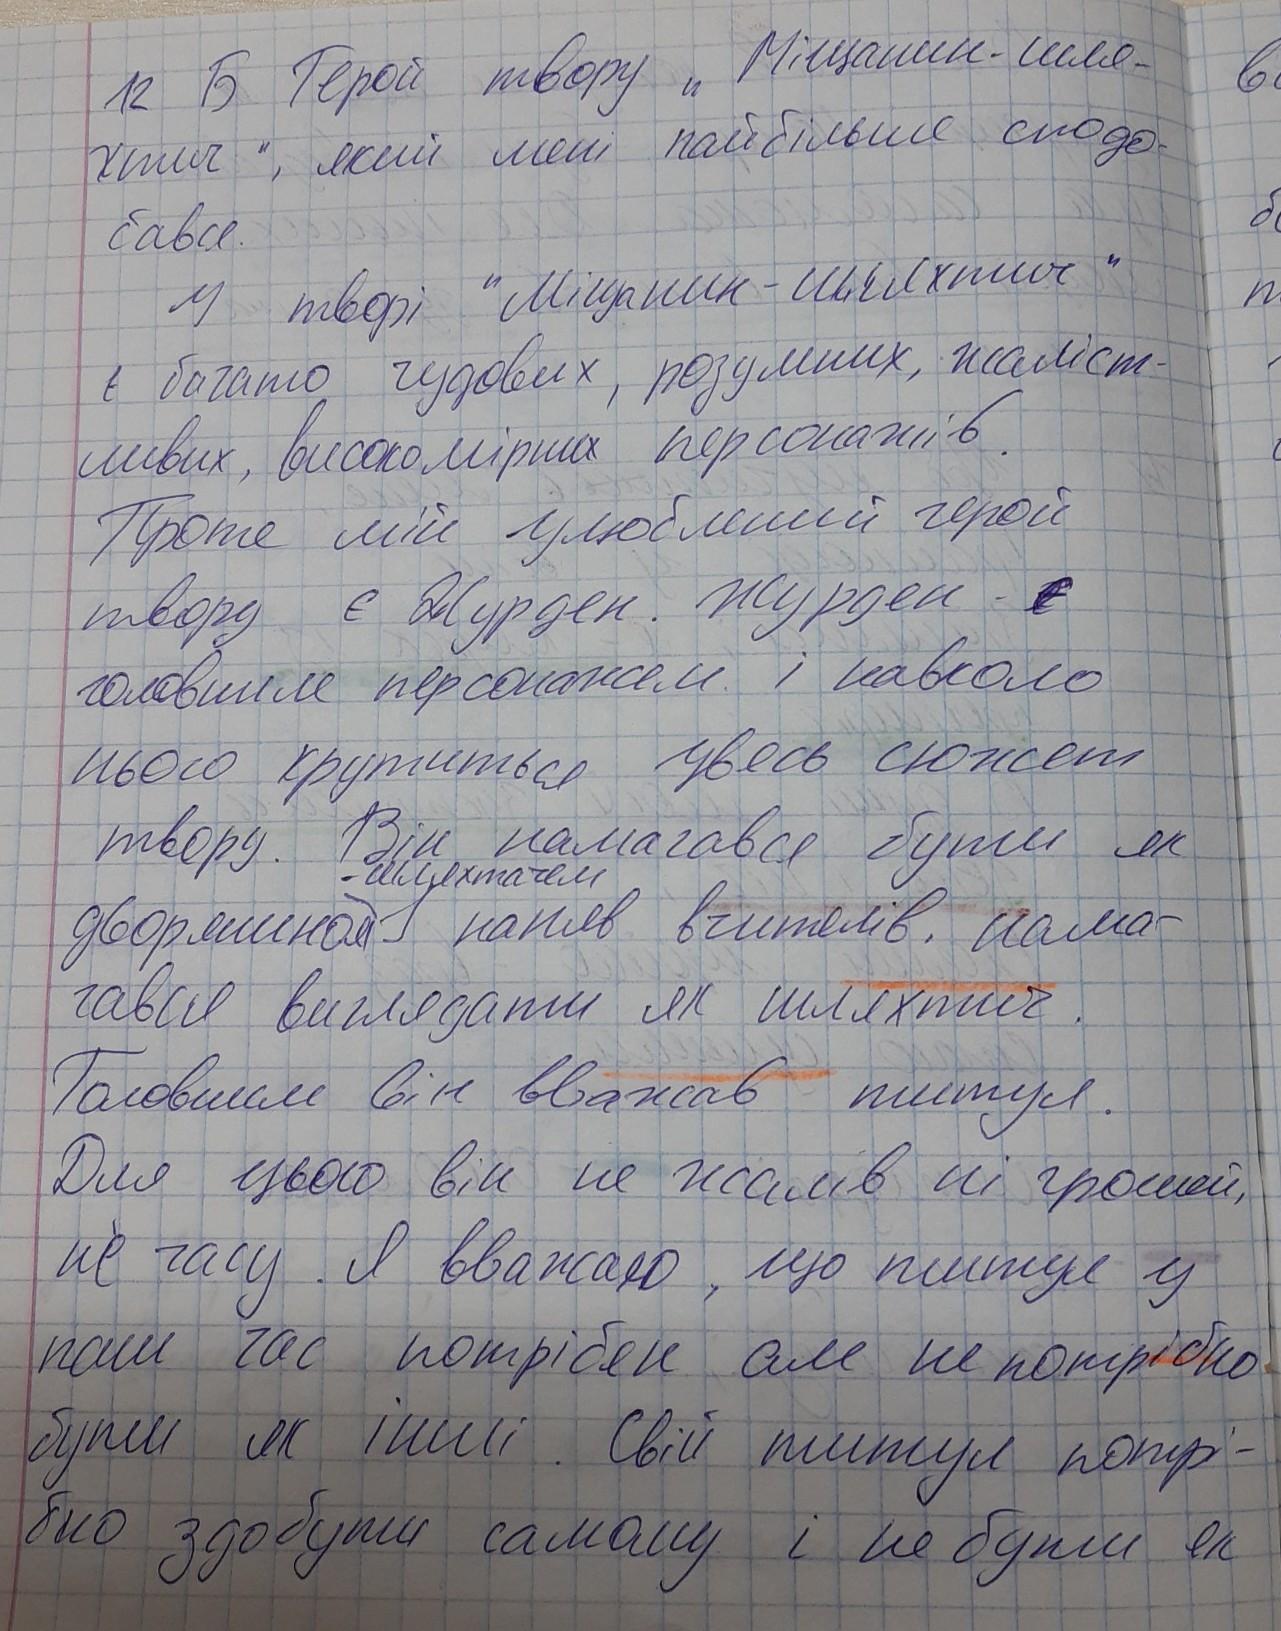 12 Б Герой твору „Міщанин-шля-
хтич", який мені найбільше сподо-
бався.
У творі "Міщанин-шляхтич"
є багато чудових, розумних, жаліст-
ливих, високомірних персонажів.
Проте мій улюблений герой
твору є Журден. Журден - є
головним персонажем і навколо
нього крутиться увесь сюжет
твору. Він намагався бути як
-шляхтачем
дворянином наняв вчителів, нама-
гався виглядати як шляхтич.
Головним він вважав титул.
Для цього він не жалів ні грошей,
ні часу. Я вважаю, що титул у
наш час потрібен але не потрібно
бути як інші. Свій титул потрі-
бно здобути самому і не бути як